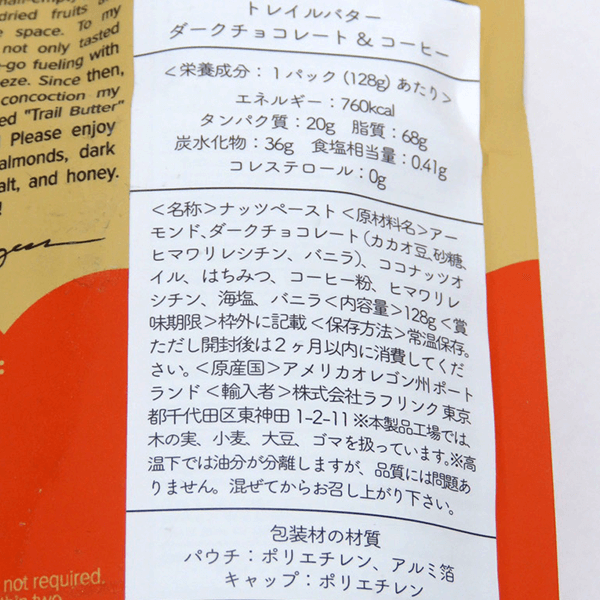 dried fruits
space. To my
not only tasted
-go fueling with
eze. Since then,
concoction my
ed "Trail Butter"
! Please enjoy
almonds, dark
alt, and honey.
!
トレイルバター
ダークチョコレート & コーヒー
<栄養成分:1パック (128g) あたり>
エネルギー:760kcal
タンパク質:20g 脂質:68g
炭水化物:36g 食塩相当量:0.41g
コレステロール:0g
<名称>ナッツペースト<原材料名>アー
モンド、ダークチョコレート(カカオ豆、砂糖、
ヒマワリレシチン、バニラ)、ココナッツオ
イル、はちみつ、コーヒー粉、ヒマワリレ
シチン、海塩、バニラ<内容量>128g<賞
味期限>枠外に記載<保存方法>常温保存。
ただし開封後は2ヶ月以内に消費してくだ
さい。<原産国>アメリカオレゴン州ポート
ランド<輸入者>株式会社ラフリンク東京
都千代田区東神田1-2-11※本製品工場では、
木の実、小麦、大豆、ゴマを扱っています。※高
温下では油分が分離しますが、品質には問題あ
りません。混ぜてからお召し上がり下さい。
包装材の材質
パウチ:ポリエチレン、アルミ箔
キャップ:ポリエチレン
not required.